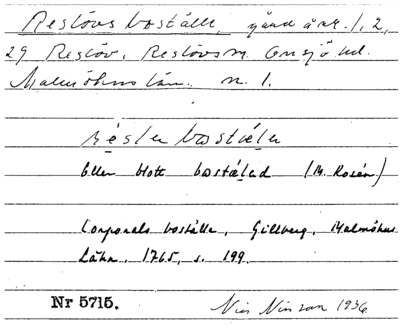 Reslövs boställe, gård å nr. 1, 2,
29 Reslöv, Reslövs sn. Onsjö hd.
Malmöhus län. n. 1.
résler bostæler
Eller blott bostálad (M. Rosén)
Corporals boställe, Gillberg, Malmöhus
Lähn, 1765, s. 199.
Nr 5715.
Nils Nilsson 1936